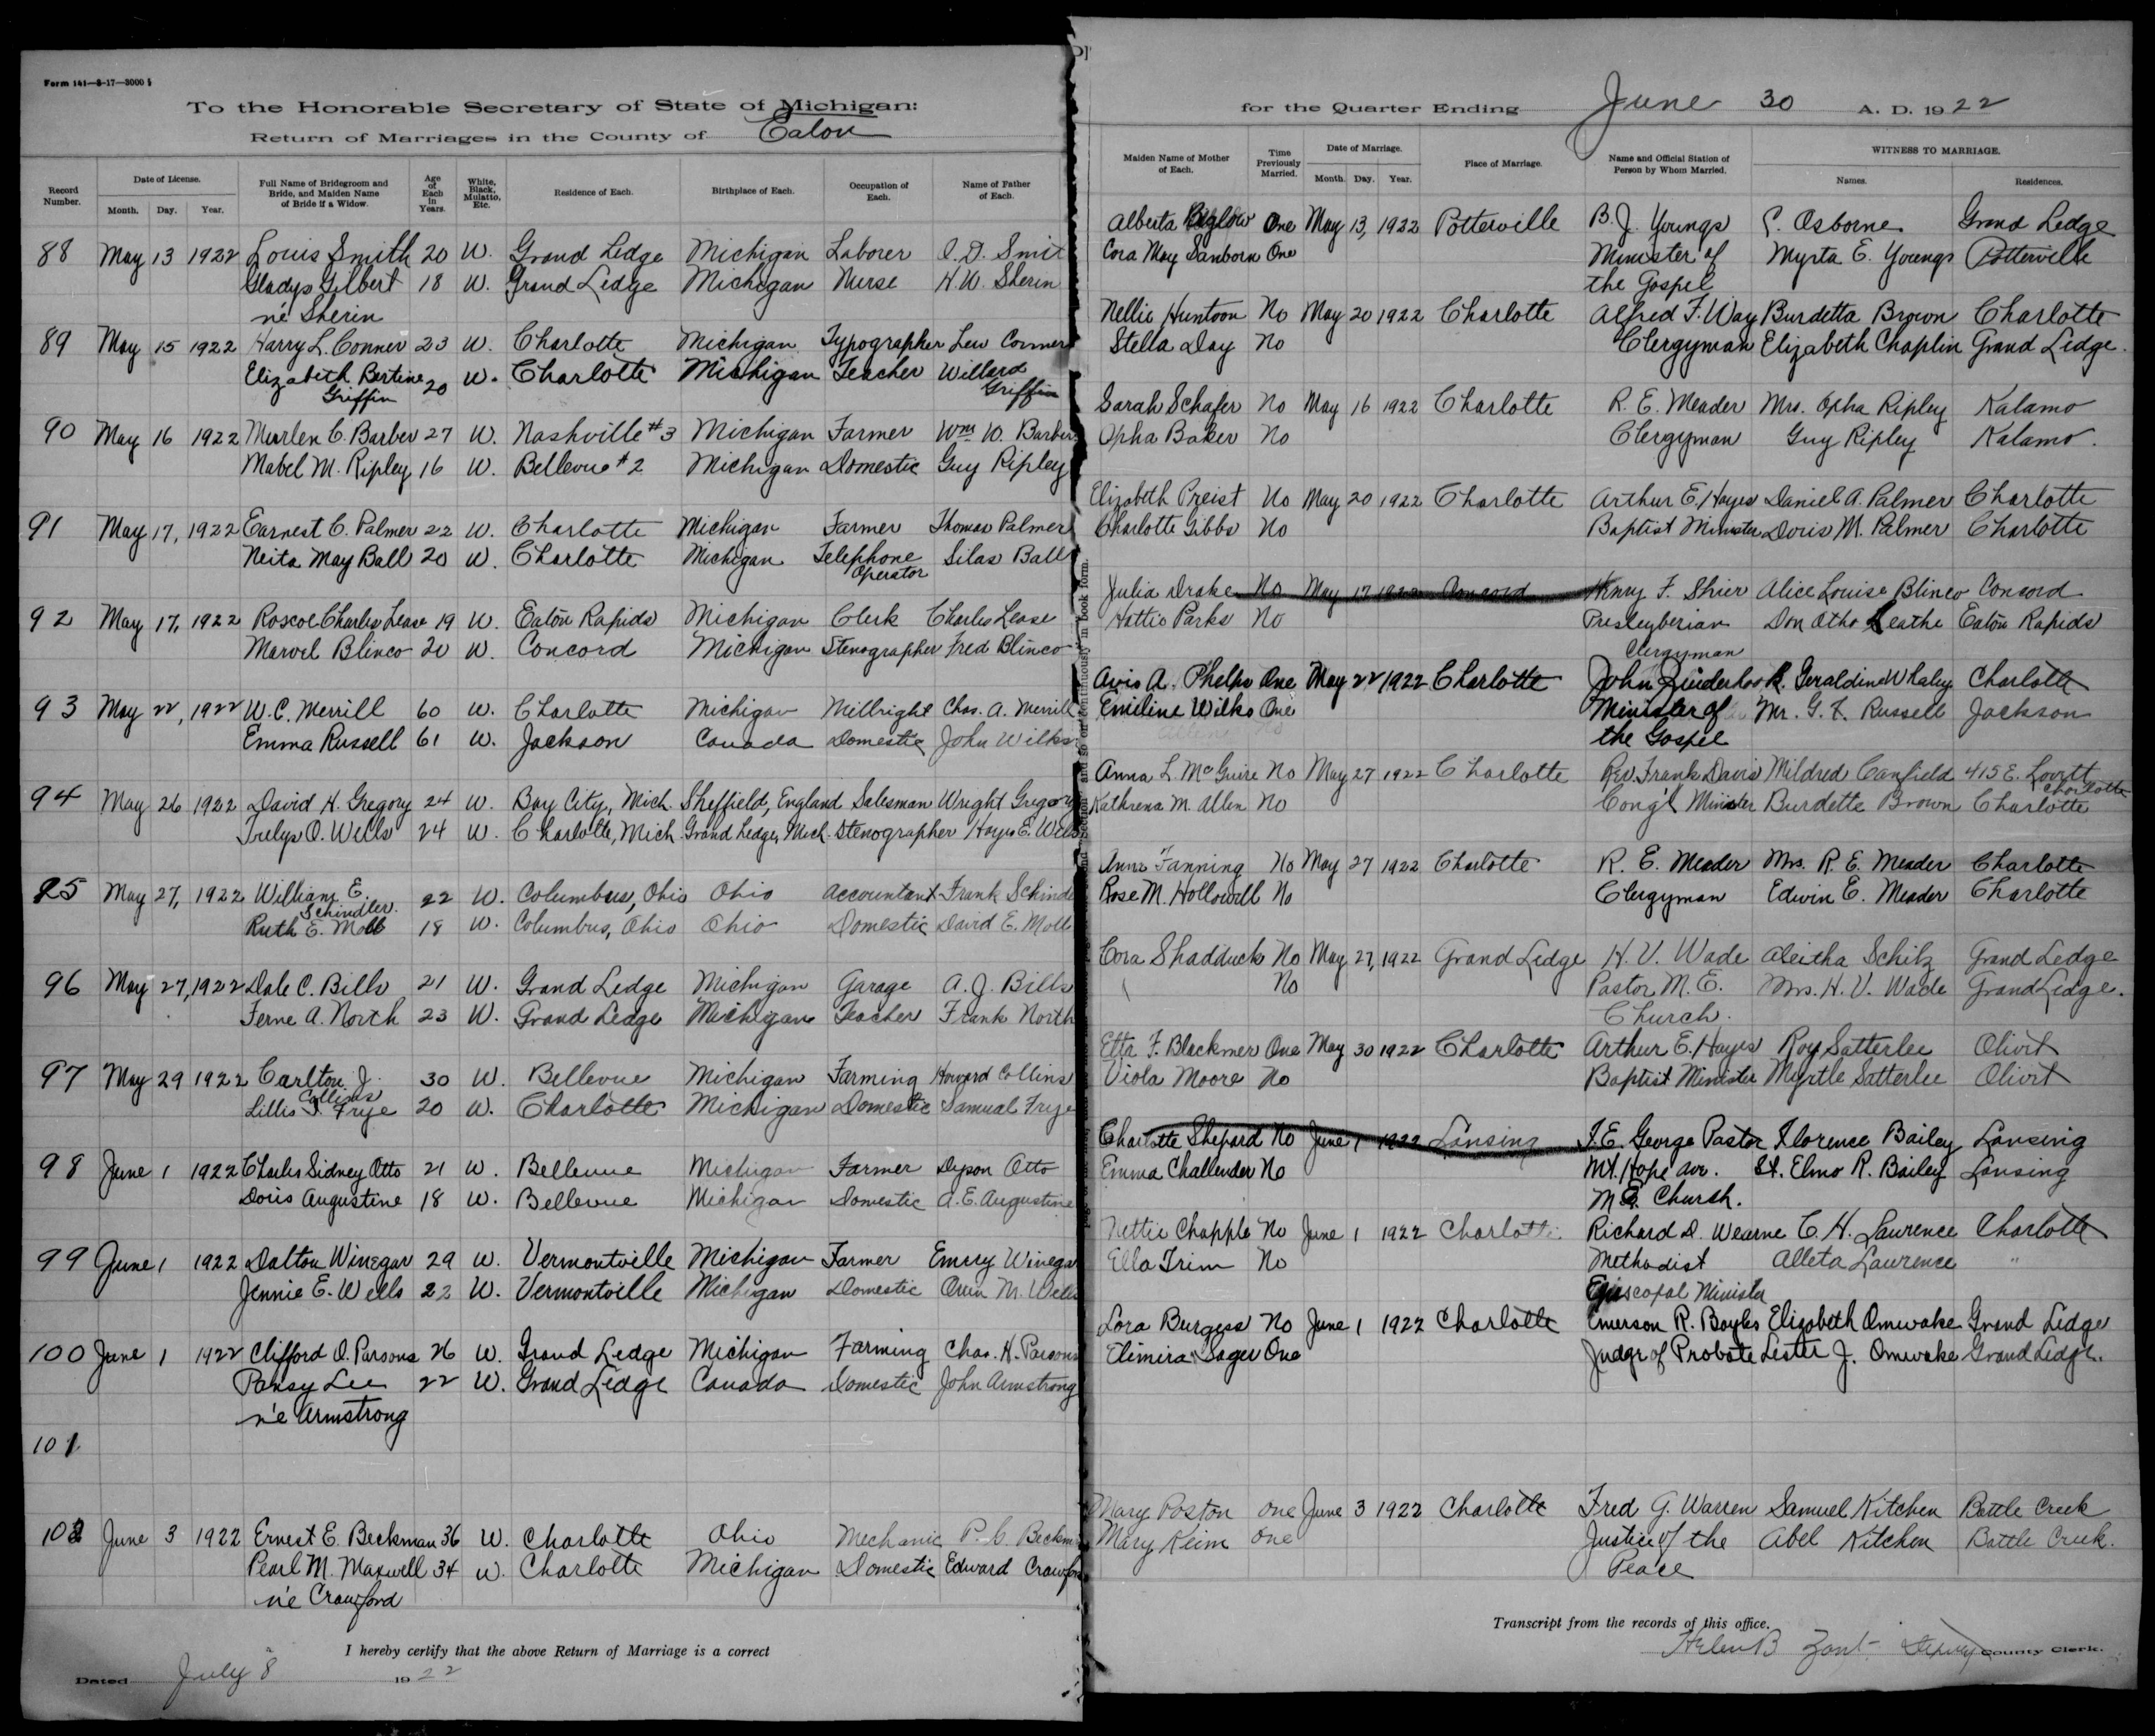 Form 141—8-17—3000
To the Honorable Secretary of State of Michigan:
Return of Marriages in the County of Eaton
for the Quarter Ending June 30 A. D. 1922
Record Number.
Date of License.
Month. Day. Year.
Full Name of Bridegroom and Bride, and Maiden Name of Bride if a Widow.
Age of Each in Years.
White, Black, Mulatto, Etc.
Residence of Each.
Birthplace of Each.
Occupation of Each.
Name of Father of Each.
Maiden Name of Mother of Each.
Time Previously Married.
Date of Marriage.
Month. Day. Year.
Place of Marriage.
Name and Official Station of Person by Whom Married.
WITNESS TO MARRIAGE.
Names. Residences.
88 May 13 1922 Louis Smith 20 W. Grand Ledge Michigan Laborer O. D. Smit
Gladys Gilbert 18 W. Grand Ledge Michigan Nurse H. W. Sherin
né Sherin
89 May 15 1922 Harry L. Conner 23 W. Charlotte Michigan Typographer Lew Conner
Elizabeth Bertine 20 W. Charlotte Michigan Teacher Willard
Griffin Griffin
90 May 16 1922 Merlen C. Barber 27 W. Nashville #3 Michigan Farmer Wm W. Barber
Mabel M. Ripley 16 W. Bellevue #2 Michigan Domestic Guy Ripley
91 May 17, 1922 Earnest C. Palmer 22 W. Charlotte Michigan Farmer Thomas Palmer
Neita May Ball 20 W. Charlotte Michigan Telephone Silas Ball
Operator
92 May 17, 1922 Roscoe Charles Lease 19 W. Eaton Rapids Michigan Clerk Charles Lease
Marvel Blinco 20 W. Concord Michigan Stenographer Fred Blinco
93 May 22, 1922 W. C. Merrill 60 W. Charlotte Michigan Millright Chas. A. Merrill
Emma Russell 61 W. Jackson Canada Domestic John Wilks
94 May 26 1922 David H. Gregory 24 W. Bay City, Mich. Sheffield, England Salesman Wright Gregory
Trelys O. Wells 24 W. Charlotte, Mich. Grand Ledge, Mich. Stenographer Hayes E. Wells
95 May 27, 1922 William E. 22 W. Columbus, Ohio Ohio Accountant Frank Schinde
Schindler.
Ruth E. Moll 18 W. Columbus, Ohio Ohio Domestic David E. Moll
96 May 27, 1922 Dale C. Bills 21 W. Grand Ledge Michigan Garage A. J. Bills
Ferne A. North 23 W. Grand Ledge Michigan Teacher Frank North
97 May 29 1922 Carlton J. 30 W. Bellevue Michigan Farming Howard Collins
Collins
Lillis I. Frye 20 W. Charlotte Michigan Domestic Samuel Frye
98 June 1 1922 Charles Sidney Otto 21 W. Bellevue Michigan Farmer Dyson Otto
Doris Augustine 18 W. Bellevue Michigan Domestic A. E. Augustine
99 June 1 1922 Dalton Winegar 29 W. Vermontville Michigan Farmer Emory Winegar
Jennie E. Wells 22 W. Vermontville Michigan Domestic Orin M. Wells
100 June 1 1922 Clifford O. Parsons 26 W. Grand Ledge Michigan Farming Chas. H. Parsons
Pansy Lee 22 W. Grand Ledge Canada Domestic John Armstrong
né Armstrong
101
102 June 3 1922 Ernest E. Beckman 36 W. Charlotte Ohio Mechanic P. C. Beckm
Pearl M. Maxwell 34 W. Charlotte Michigan Domestic Edward Crawfor
né Crawford
I hereby certify that the above Return of Marriage is a correct
Dated July 8 1922
Alberta Bigelow One May 13, 1922 Potterville B. J. Youngs C. Osborne Grand Ledge
Cora May Sanborn One Minister of Myrta E. Youngs Potterville
the Gospel
Nellie Huntoon No May 20 1922 Charlotte Alfred F. Way Burdetta Brown Charlotte
Stella Day No Clergyman Elizabeth Chaplin Grand Ledge.
Sarah Schafer No May 16 1922 Charlotte R. E. Meader Mrs. Opha Ripley Kalamo
Opha Baker No Clergyman Guy Ripley Kalamo.
Elizabeth Preist No May 20 1922 Charlotte Arthur E. Hayes Daniel A. Palmer Charlotte
Charlotte Gibbs No Baptist Minister Doris M. Palmer Charlotte
Julia Drake No May 17 1922 Concord Henry F. Shier Alice Louise Blinco Concord
Hattie Parks No Presleyberian Don Otho Leathe Eaton Rapids
Clergyman
Avis A. Phelps One May 22 1922 Charlotte John Quiderhook. Geraldine Whaley Charlotte
Emiline Wilks One Minister of Mr. G. F. Russell Jackson
the Gospel
Anna L. McGuire No May 27 1922 Charlotte Rev. Frank Davis Mildred Canfield 415 E. Lovett
Charlotte
Kathrena M. Allen No Cong'l Minister Burdette Brown Charlotte
Anna Fanning No May 27 1922 Charlotte R. E. Meader Mrs. R. E. Meader Charlotte
Rose M. Hollowell No Clergyman Edwin E. Meader Charlotte
Cora Shadduck No May 27, 1922 Grand Ledge H. V. Wade Aleitha Schilz Grand Ledge
No Pastor M. E. Mrs. H. V. Wade Grand Ledge.
Church.
Etta F. Blackmer One May 30 1922 Charlotte Arthur E. Hayes Roy Satterlee Olivet
Viola Moore No Baptist Minister Myrtle Satterlee Olivet
Charlotte Shepard No June 1 1922 Lansing F. E. George Pastor Florence Bailey Lansing
Emma Challender No Mt. Hope Ave. St. Elmo R. Bailey Lansing
M. E. Church.
Nettie Chapple No June 1 1922 Charlotte Richard D. Wearne C. H. Laurence Charlotte
Ella Trim No Methodist Alleta Laurence "
Episcopal Minister
Lora Burgess No June 1 1922 Charlotte Emerson R. Boyles Elizabeth Omwake Grand Ledge
Elimira Sager One Judge of Probate Lester J. Omwake Grand Ledge.
Mary Poston One June 3 1922 Charlotte Fred G. Warren Samuel Kitchen Battle Creek
Mary Keim One Justice of the Abel Kitchen Battle Creek.
Peace
Transcript from the records of this office.
Helen B Deputy County Clerk.